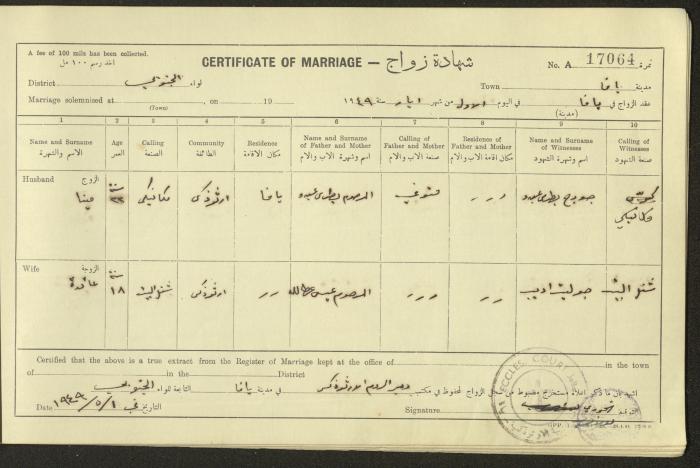 A fee of 100 mils has been collected.
اخذ رسم ١٠٠ مل
CERTIFICATE OF MARRIAGE — شهادة زواج
No. A 17064 نمرة
District لواء الجنوبي Town مدينة يافا
Marriage solemnised at (Town), on 19 عقد الزواج في يافا (مدينة) في اليوم الاول من شهر ايار سنة ١٩٤٩
1 2 3 4 5 6 7 8 9 10
Name and Surname Age Calling Community Residence Name and Surname of Father and Mother Calling of Father and Mother Residence of Father and Mother Name and Surname of Witnesses Calling of Witnesses
الاسم والشهرة العمر الصنعة الطائفة مكان الاقامة اسم وشهرة الاب والام صنعة الاب والام مكان اقامة الاب والام اسم وشهرة الشهود صنعة الشهود
Husband الزوج
مينا سنة ٢٣ مكانيكي ارثوذكس يافا المرحوم بطرس عبدو متوفي جورج بطرس عبدو
مكانيكي
Wife الزوجة
عائدة سنة ١٨ شغل البيت ارثوذكس المرحوم عيسى جوليت اديب شغل البيت
Certified that the above is a true extract from the Register of Marriage kept at the office of in the town
of in the District
اشهد بان ما ذكر اعلاه مستخرج مضبوط من سجل الزواج المحفوظ في مكتب الارثوذكس في مدينة يافا التابعة للواء الجنوبي
Date التاريخ في ١٩٤٩/٥/١ Signature التوقيع الخوري
ECCLES. COURT